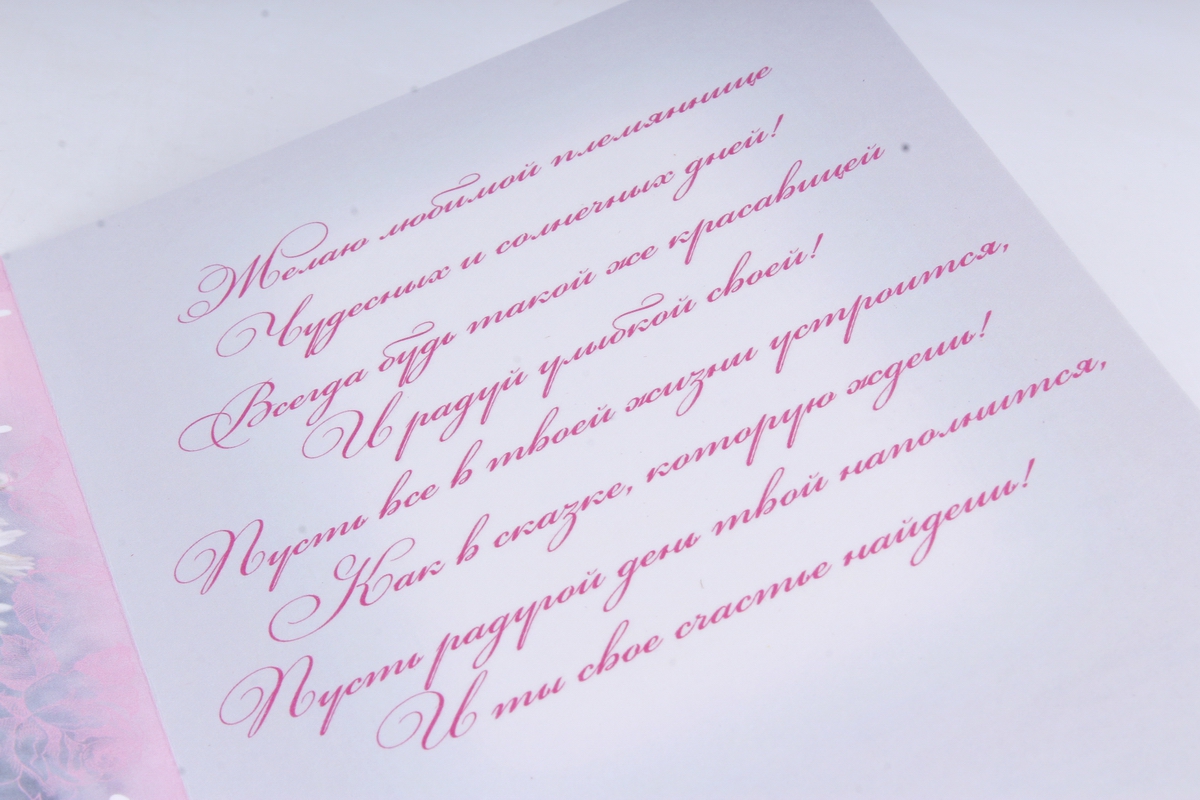 Желаю любимой племяннице
Чудесных и солнечных дней!
Всегда будь такой же красавицей
И радуй улыбкой своей!
Пусть все в твоей жизни устроится,
Как в сказке, которую ждешь!
Пусть радугой день твой наполнится,
И ты свое счастье найдешь!